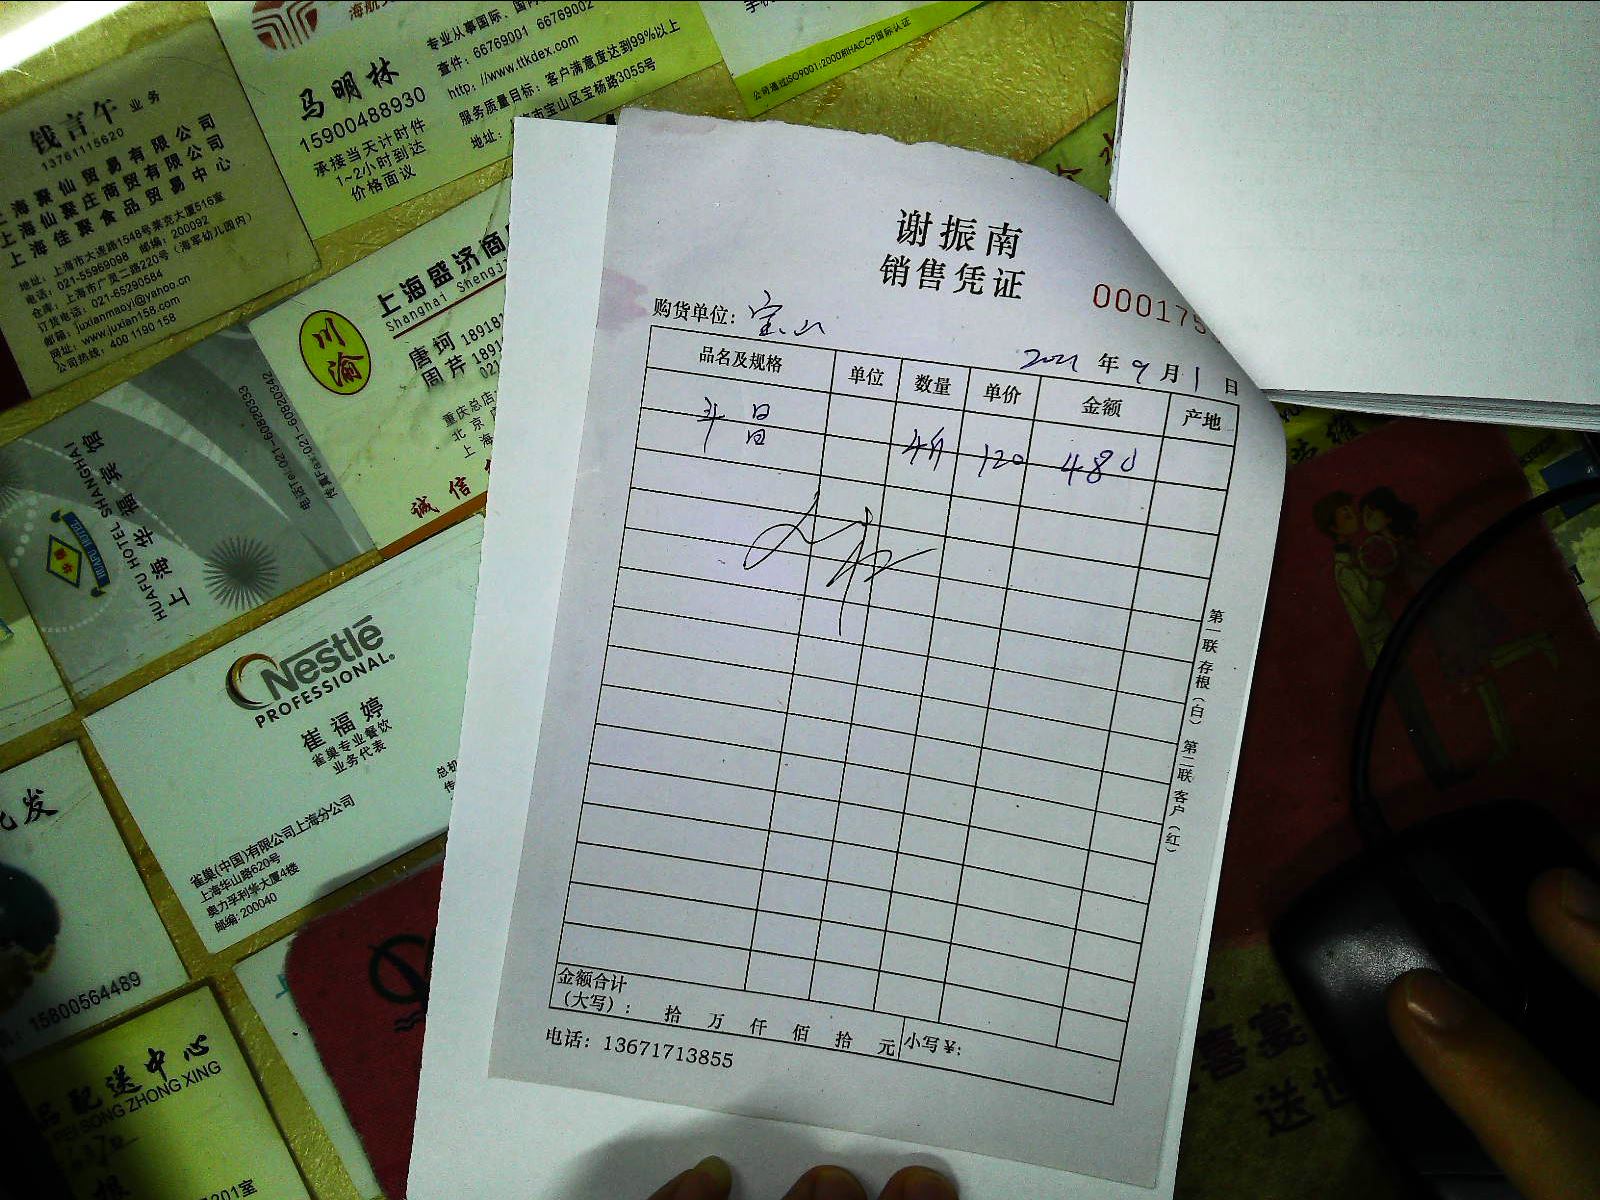 钱言午 业务
13761115620
上海聚仙贸易有限公司
上海仙聚庄商贸有限公司
上海佳聚食品贸易中心
地址：上海市大连路1548号来克大厦516室
电话：021-55969098 邮编：200092
仓库：上海市广灵二路220号（海军幼儿园内）
订货电话：021-65290584
邮箱：juxianmaoyi@yahoo.cn
网址：www.juxian158.com
公司热线：400 1190 158
马明林
15900488930
承接当天计时件
1~2小时到达
价格面议
专业从事国际、国
查件：66769001 66769002
http：//www.ttkdex.com
服务质量目标：客户满意度达到99%以上
地址：
市宝山区宝杨路3055号
公司通过ISO9001:2000和HACCP国际认证
川渝
上海盛济商
Shanghai Shengji
唐坷 18918
周芹 1891
021
重庆总店
北京
上海
诚信
上海华福宾馆
HUAFU HOTEL SHANGHAI
HUAFU HOTEL
电话Tel:021-60820342
传真Fax:021-60820333
Nestlé
PROFESSIONAL®
崔福婷
雀巢专业餐饮
业务代表
总机
传
雀巢(中国)有限公司上海分公司
上海华山路620号
奥力孚利华大厦4楼
邮编: 200040
发
15800564489
配送中心
PEI SONG ZHONG XING
201室
谢振南
销售凭证
购货单位：宝山
000175
2021 年 9 月 1 日
品名及规格 单位 数量 单价 金额 产地
120 480
第一联 存根（白） 第二联 客户（红）
金额合计
（大写）： 拾 万 仟 佰 拾 元 小写￥:
电话：13671713855
喜宴
送世